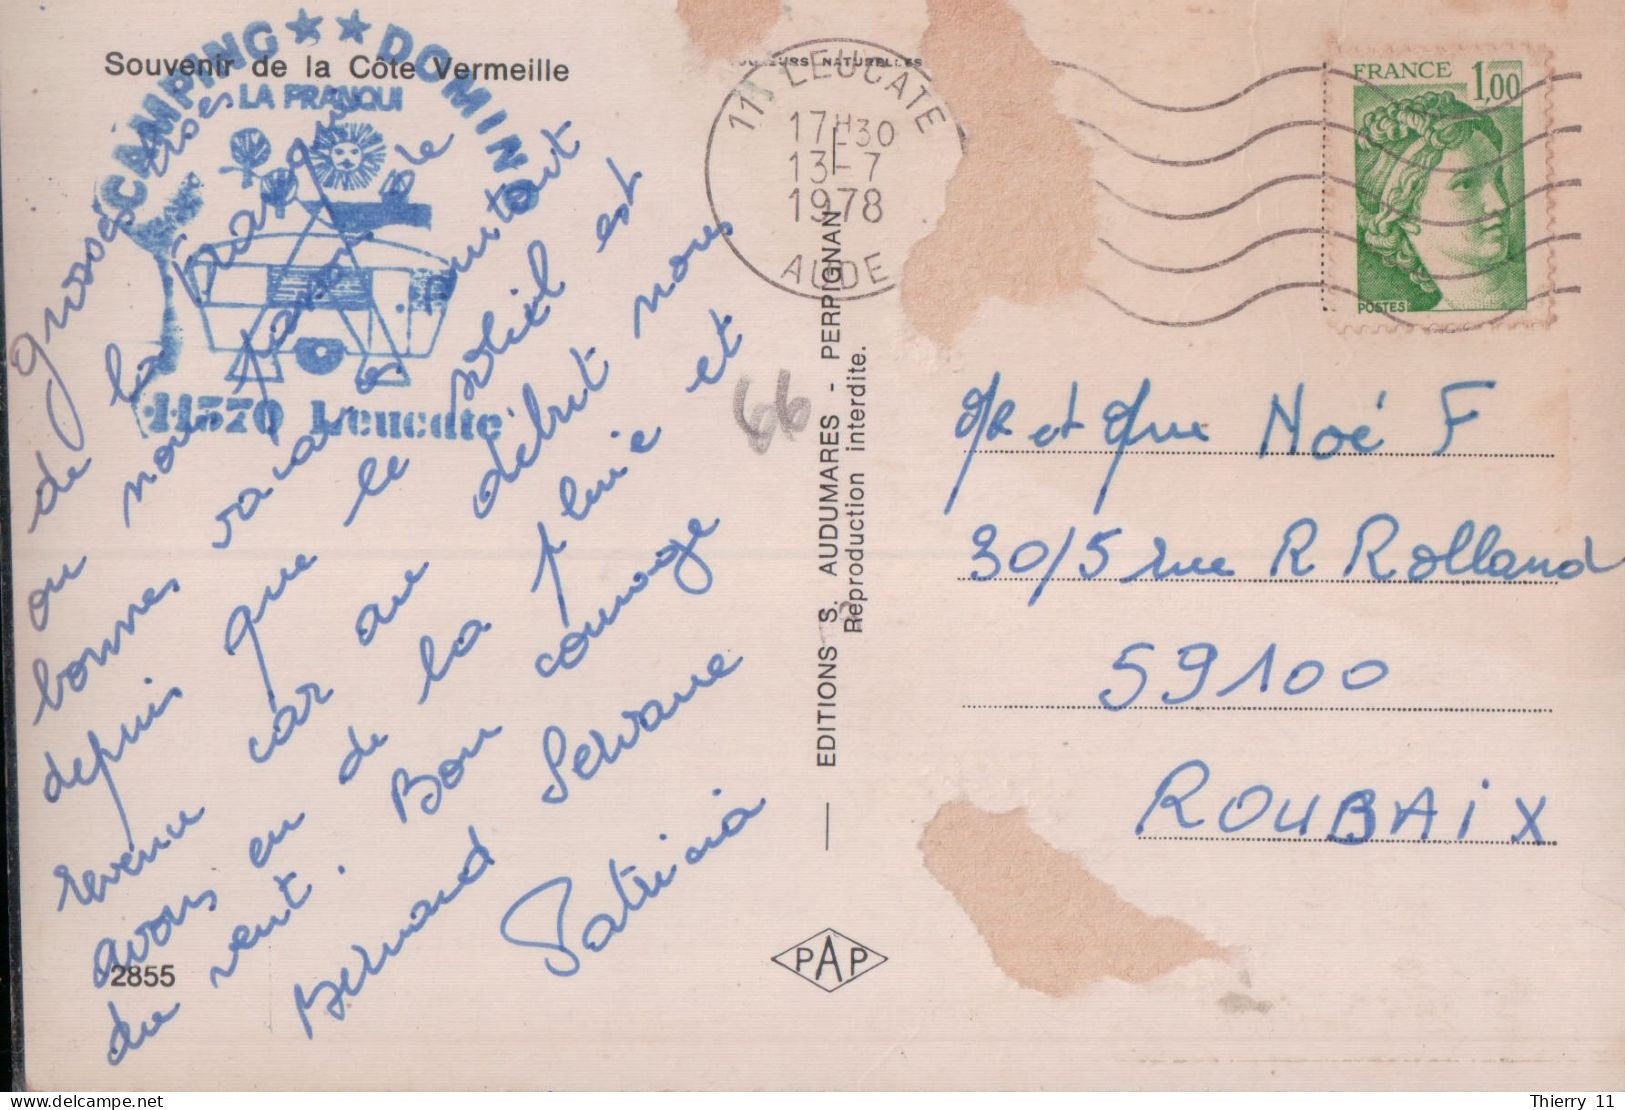 Souvenir de la Côte Vermeille
CAMPING ★★ DOMINO
LA FRANQUI
11370 Leucate
grosses bises
de la Franqui
où nous passons de
bonnes vacances surtout
depuis que le soleil est
revenu car au début nous
avons eu de la pluie et
du vent. Bon courage
Bernard Servane
Patricia
2855
COULEURS NATURELLES
11 LEUCATE
17H30
13-7
1978
AUDE
66
EDITIONS S. AUDUMARES - PERPIGNAN
Reproduction interdite.
PAP
FRANCE 1,00
POSTES
Mr et Mme Noé F
30/5 rue R Rolland
59100
ROUBAIX
Thierry 11